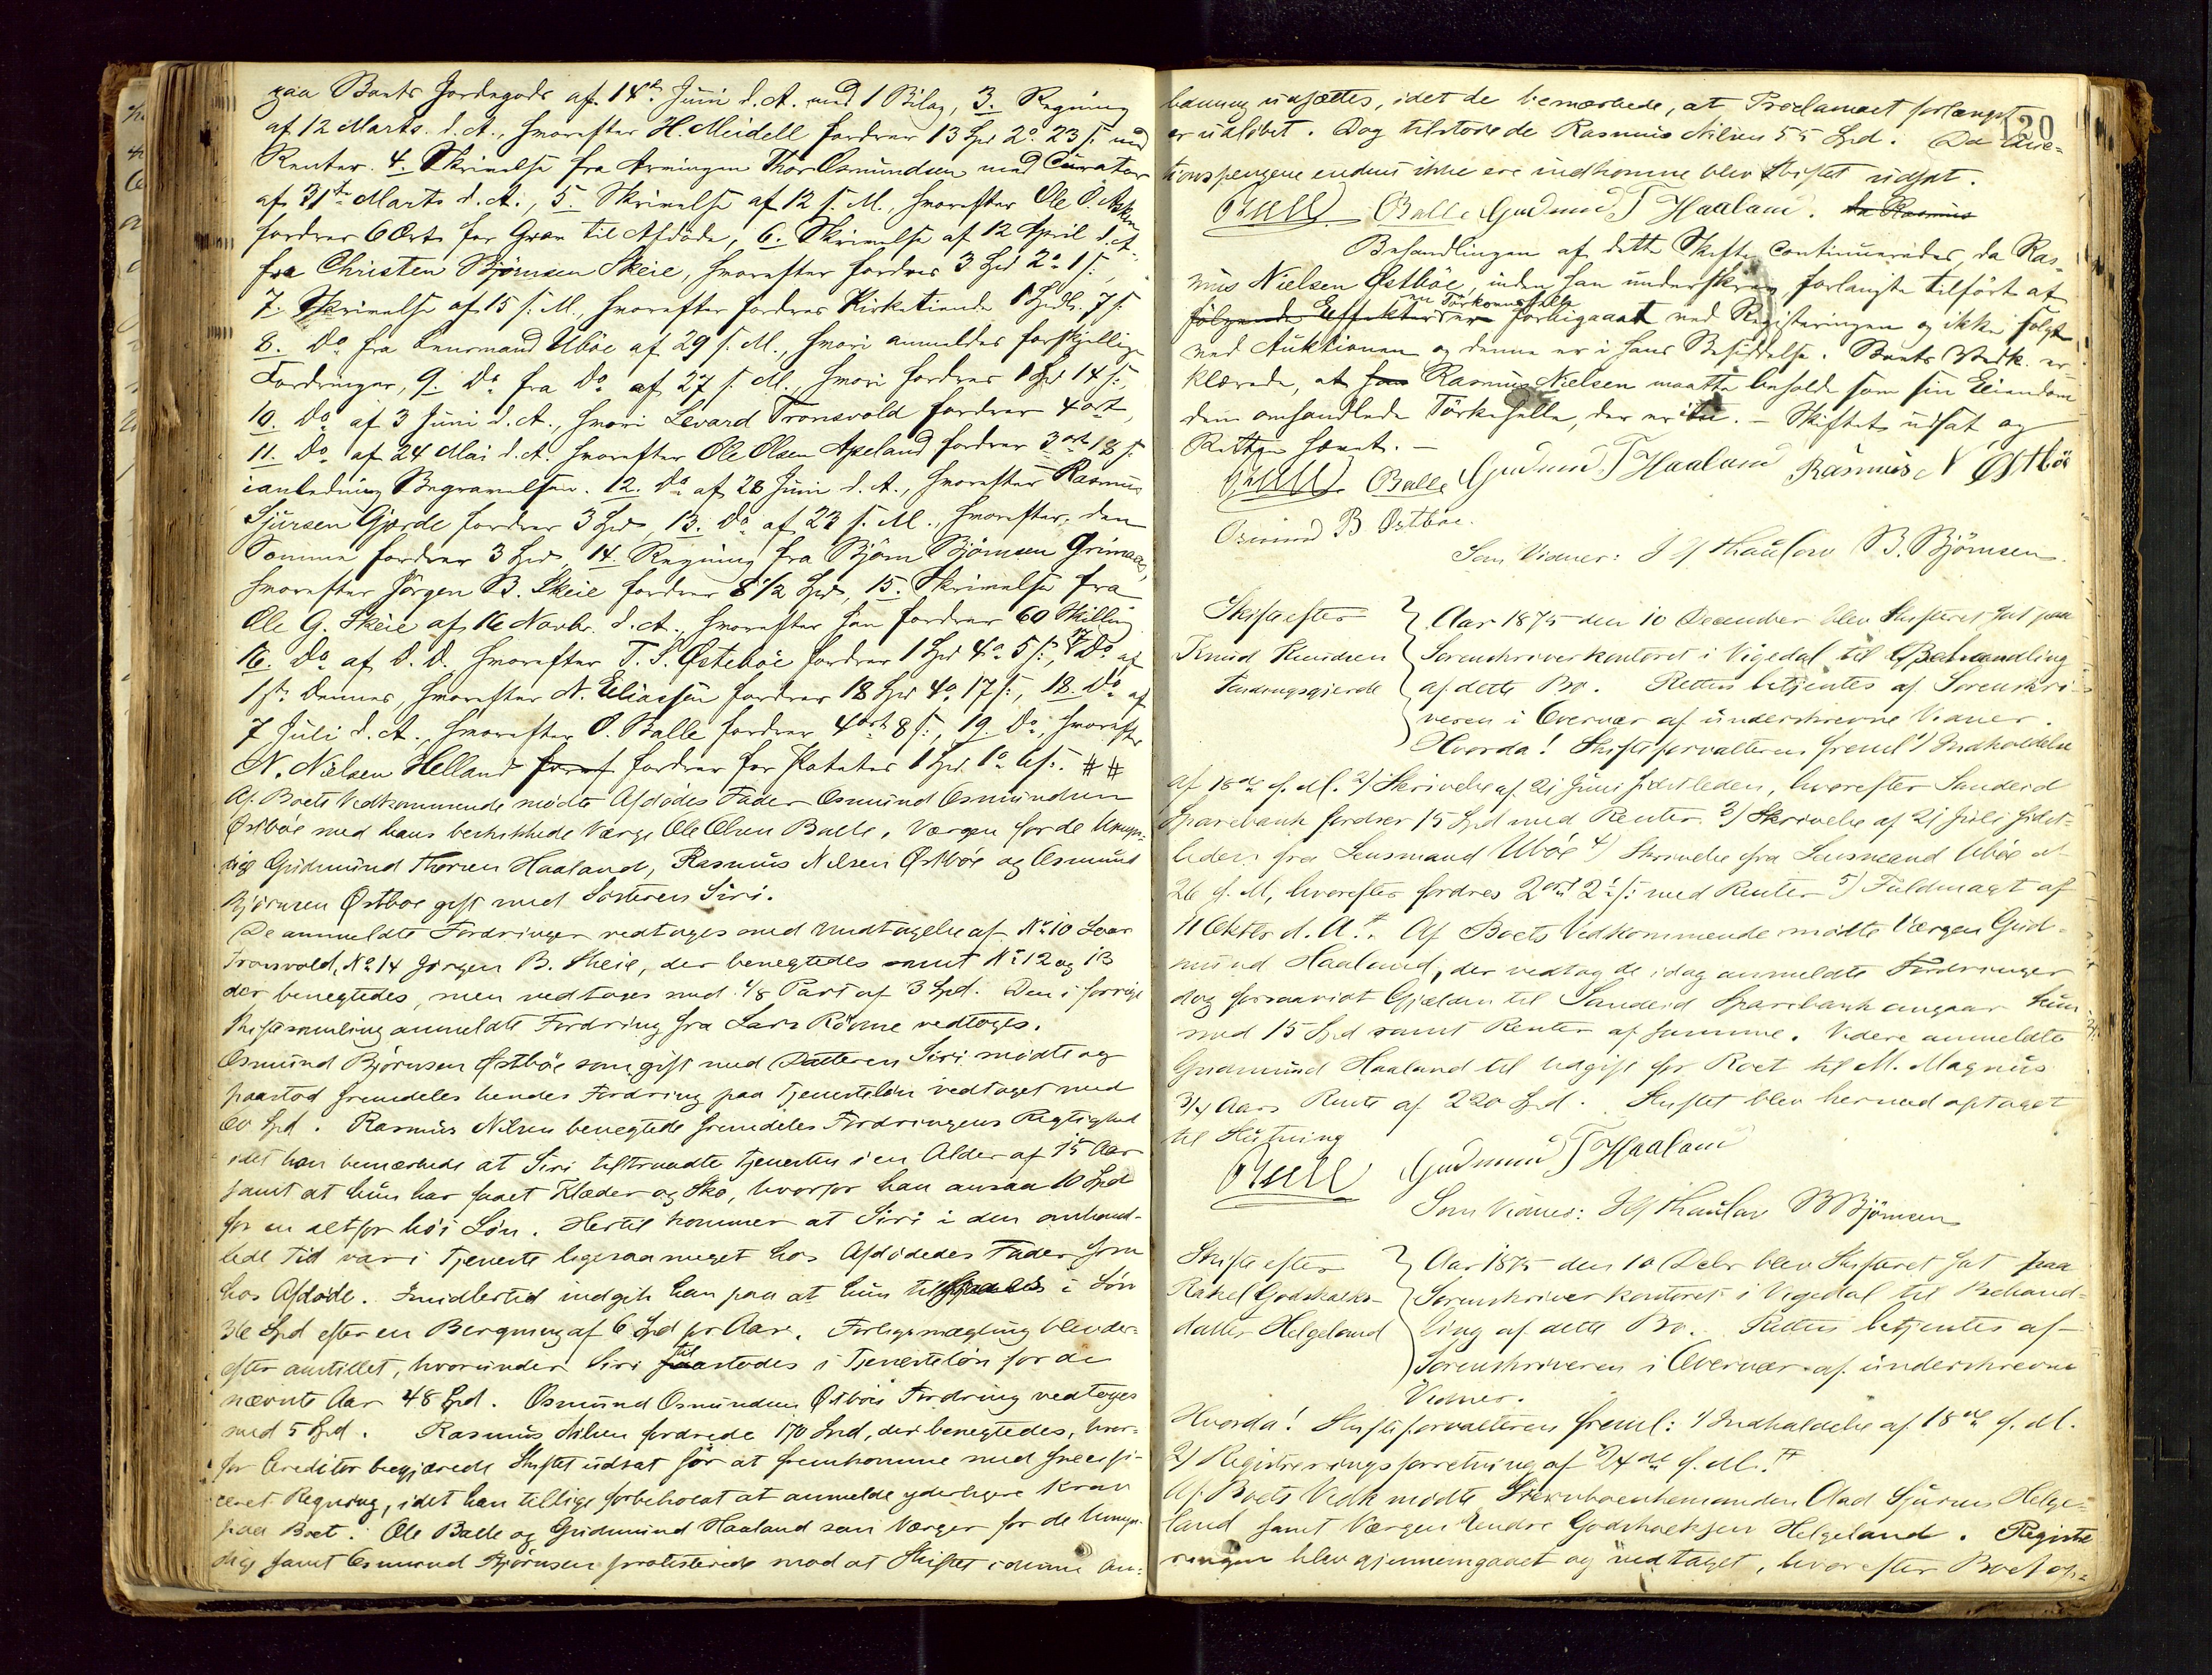 paa Boets Jordegods af 14de Juni d. A. med 1 Bilag, 3. Regning
af 12 Marts d. A., hvorefter H. Meidell fordrer 13 Spd 2o 23 s: med
Renter. 4. Skrivelse fra Arvingen Thor Osmundsen med Curator
af 31te Marts d. A., 5. Skrivelse af 12 s. M., hvorefter Ole O.
fordrer 6 Ort for Grav til Afdøde, 6. Skrivelse af 12 April d. A.
fra Christen Bjørnsen Skeie, hvorefter fordres 3 Spd 2o 1 s:,
7. Skrivelse af 15 s. M., hvorefter fordres Kirketiende 1 Spdlr. 7 s:
8. Do fra Lensmand Ubøe af 29 s. M., hvori anmeldes forskjellige
Fordringer, 9. Do fra Do af 27 s. M., hvori fordres 1 Spd 14 s:,
10. Do af 3 Juni d. A., hvori Levard Tronsvold fordrer 4 ort,
11. Do af 24 Mai d. A. hvorefter Ole Olsen Apeland fordrer 3 ort 18 s:
i anledning Begravelsen. 12. Do af 28 Juni d. A., hvorefter Rasmus
Sjursen Gjerde fordrer 3 Spd, 13. Do af 23 s. M., hvorefter den
Samme fordrer 3 Spd, 14. Regning fra Bjørn Bjørnsen Grimaas,
hvorefter Jørgen B. Skeie fordrer 8 1/2 Spd, 15. Skrivelse fra
Ole G. Skeie af 16 Novbr. d. A., hvorefter han fordrer 60 Skilling
16. Do af D. D. hvorefter T. S. Østebøe fordrer 1 Spd 4o 5 s:, 17 Do af
1ste dennes, hvorefter N. Eliassen fordrer 18 Spd 4o 17 s:, 18. Do af
7 Juli d. A., hvorefter O. Balle fordrer 4 ort 8 s:, 19. Do, hvorefter
N. Nielsen Helland fordrer for Potetes 1 Spd. 1o 6 s:. ##
Af Boets Vedkommende mødte Afdødes Fader Osmund Osmundsen
Østbøe med hans beskikkede Værge Ole Olsen Balle, Værgen for de Umyn-
dige Gudmund Thorsen Haaland, Rasmus Nilsen Østbøe og Osmund
Bjørnsen Østbøe gift med Søsteren Siri.
De anmeldte Fordringer vedtoges med Undtagelse af No 10 Levar
Tronsvold, No 14 Jørgen B. Skeie, der benegtedes samt No 12 og 13
der benegtedes, men vedtoges med 1/8 Part af 3 Spd. Den i forrige
Skiftesamling anmeldte Fordring fra Lars Røvne vedtoges.
Osmund Bjørnsen Østbøe som gift med Datteren Siri mødte og
paastod fremdeles hendes Fordring paa Tjenesteløn vedtaget med
60 Spd. Rasmus Nilsen benegtede fremdeles Fordringens Rigtighed
idet han bemærkede at Siri tiltraadte Tjenesten i en Alder af 15 Aar
samt at hun har faaet Klæder og Sko, hvorfor han ansaa 10 Spd
for en altfor høi Løn. Hertil kommer at Siri i den omhand-
lede Tid var i Tjeneste ligesaa meget hos Afdødedes Fader som
hos Afdøde. Imidlertid indgik han paa at hun i Løn
36 Spd efter en Beregning af 6 Spd pr Aar. Forligsmægling blev der-
efter anstillet, hvorunder Siri tilstodes i Tjenesteløn for de
nævnte Aar 48 Spd. Osmund Osmundsen Østbøes Fordring vedtoges
med 5 Spd. Rasmus Nilsen fordrede 170 Spd, der benegtedes, hvor-
for Creditor begjærede Skiftet udsat for at fremkomme med specifi-
ceret Regning, idet han tillige forbeholdt at anmelde yderligere Krav
paa Boet. Ole Balle og Gudmund Haaland som Værger for de Umyn-
dige samt Osmund Bjørnsen protesterede mod at Skiftet i denne An-
120
ledning udsættes, idet de bemærkede, at Proclamaet forlængst
er udløbet. Dog tilstodede Rasmus Nilsen 55 Spd. Da Auc-
tionspengene endnu ikke ere indkomne blev Skiftet udsat.
Balle Gudmund T Haaland. da Rasmus
Behandlingen af dette Skifte continueredes, da Ras-
mus Nielsen Østbøe, inden han underskrev, forlangte tilført at
følgende Effekter er en Tørkonehelle forbigaaet ved Registeringen og ikke solgt
ved Auktionen og denne er i hans Besiddelse. Boets Vedk. er-
klærede, at han Rasmus Nielsen maatte beholde som sin Eiendom
den omhandlede Tørkehelle, der er itu. – Skiftet udsat og
Retten hævet. –
Balle Gudmund T Haaland Rasmus N Østbø
Osmund B Østbøe.
Som Vidner: B. Bjørnsen.
Skifte efter
Knud Knudsen
Tendragsgjerde
Aar 1875 den 10 December blev Skifteret sat paa
Sorenskriverkontoret i Vigedal til Behandling
af dette Bo. Retten betjentes af Sorenskri-
veren i Overvær af underskrevne Vidner.
Hvorda! Skifteforvalteren freml. 1) Indkaldelse
af 18de f. M. 2) Skrivelse af 21 Juni sidstleden, hvorefter Sandeid
Sparebank fordrer 15 Spd med Renter. 3) Skrivelse af 21 Juli sidst-
leden fra Lensmand Ubøe 4) Skrivelse fra Lensmand Ubøe af
26 f. M, hvorefter fordres 2 ort 21 s: med Renter 5) Fuldmagt af
11 Oktbr d. A. # Af Boets Vedkommende mødte Værgen Gud-
mund Haaland, der vedtog de idag anmeldte Fordringer
dog forsaavidt Gjælden til Sandeid Sparebank angaar kun
med 15 Spd samt Renter af samme. Videre anmeldte
Gudmund Haaland til Udgift for Boet til M. Magnus
3/4 Aars Rente af 220 Spd. Skiftet blev hermed optaget
til Slutning
Gudmund T Haaland
Som Vidner: B Bjørnsen
Skifte efter
Rakel Godskalks-
datter Helgeland
Aar 1875 den 10 Debr blev Skifteret sat paa
Sorenskriverkontoret i Vigedal til Behand-
ling af dette Bo. Retten betjentes af
Sorenskriveren i Overvær af underskrevne
Vidner.
Hvorda! Skifteforvalteren freml: 1) Indkaldelse af 18de f. M.
2) Registreringsforretning af 24de f. M. #
Af Boets Vedk mødte Enkemanden Aad Sjursen Helge-
land samt Værgen Endre Godskalksen Helgeland. Registe
ringen blev gjennemgaaet og vedtaget, hvorefter Boet op-